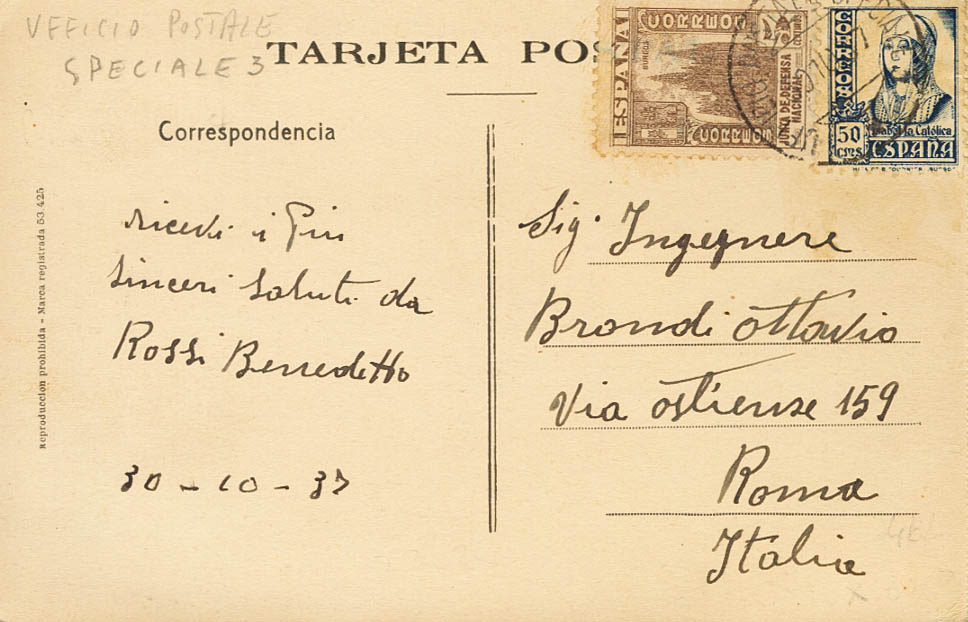 UFFICIO POSTALE
SPECIALE 3
TARJETA POS
Correspondencia
ricevi i Piu
sinceri saluti da
Rossi Benedetto
30 - 10 - 37
Sig. Ingegnere
Brondi Ottavio
Via Ostiense 159
Roma
Italia
Reproduccion prohibida - Marca registrada 53.425
ESPAÑA
CORREOS
JUNTA DE DEFENSA
NACIONAL
CORREOS
BURGOS
CORREOS
50
CTS
Isabel la Católica
ESPAÑA